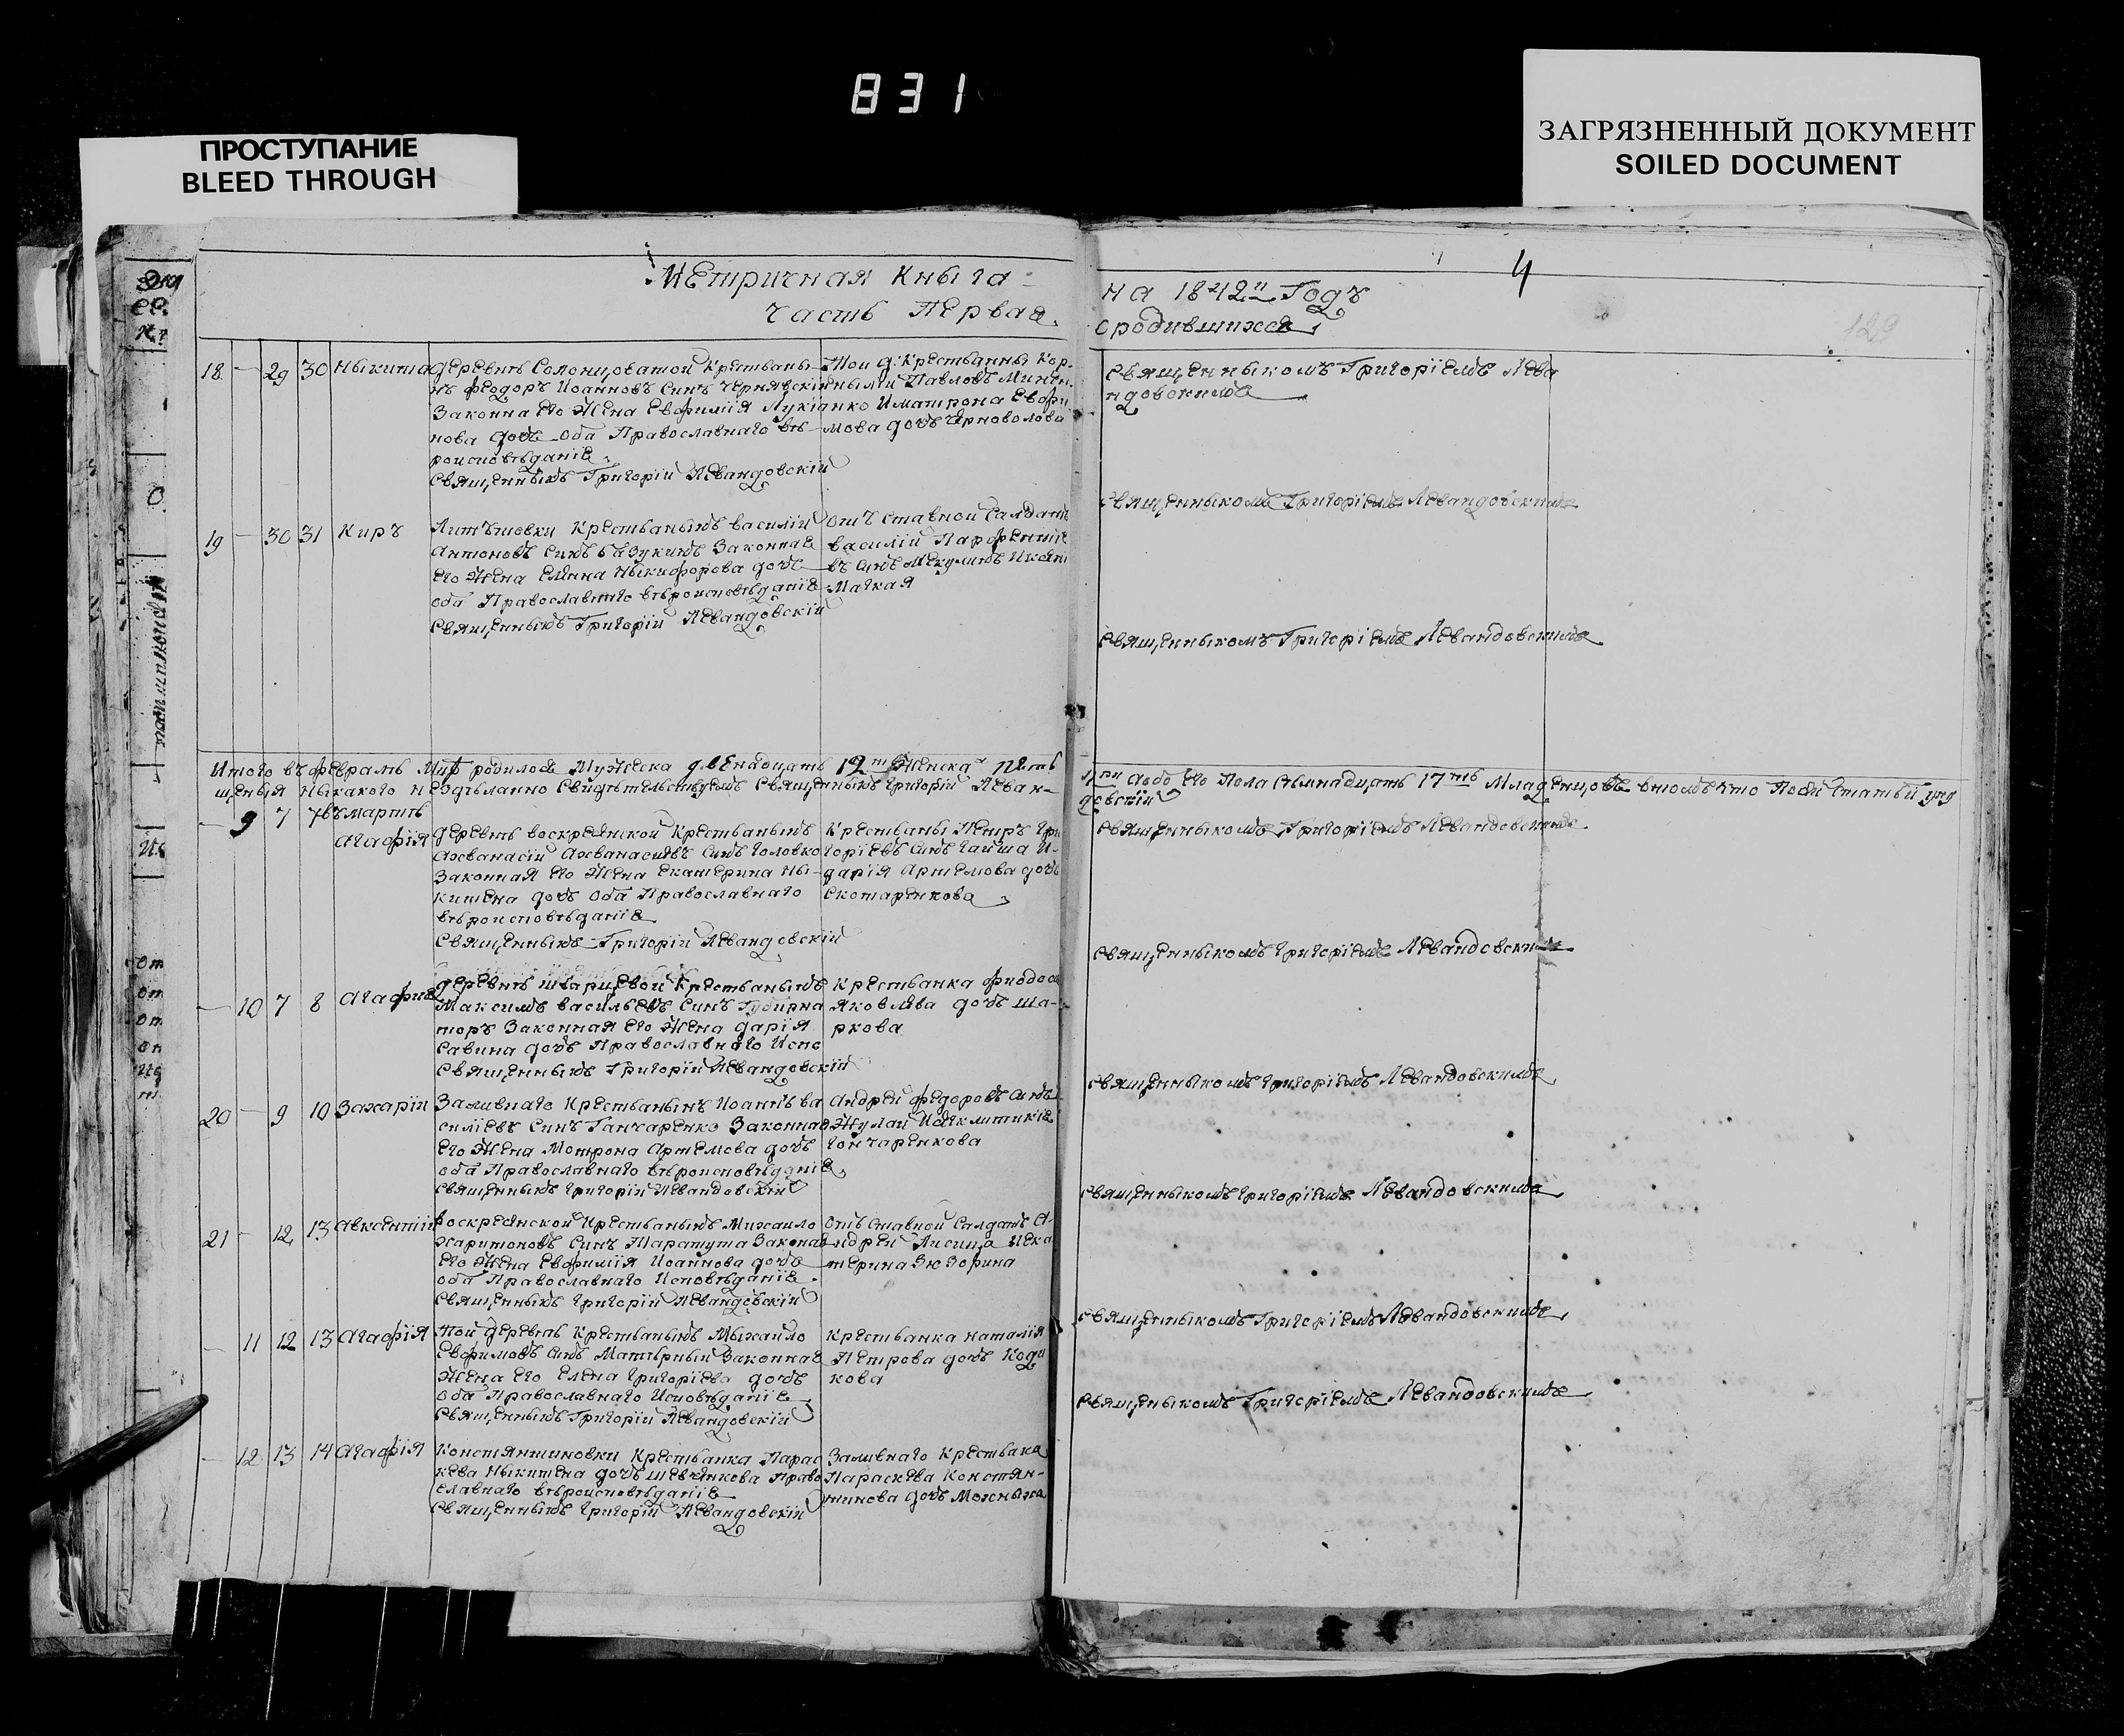 831
ПРОСТУПАНИЕ
BLEED THROUGH
ЗАГРЯЗНЕННЫЙ ДОКУМЕНТ
SOILED DOCUMENT
Метричная Кныга
часть Первая
на 1842й Годъ
4
ородившихся
129
18 — 29 30 Ныкита
деревнѣ Солонцоватой Крестьяны-
нъ Феодоръ Иоанновъ Синъ Чернявскій
Законна его Жена Евфимія Лукія
нова дочь оба Православнаго вѣ-
роисповѣданія
Священныкъ Григорій Левандовскій
Той д: Крестьянны Кор-
ныліи Павловъ Минен-
ко И Матрона Евфи
мова дочь Черноволова
Священныкомъ Григоріемъ Лева
ндовскимъ
19 — 30 31 Киръ
Крестьяныкъ василій
Антоновъ Синъ Законная
его Жена Елина Ныкифорова дочь
оба Православнаго вѣроисповѣданія
Священныкъ Григорій Левандовскій
отъ Ставной Салдатъ
василій
Священныкомъ Григоріемъ Левандовскимъ
Священныкомъ Григоріемъ Левандовскимъ
Итого въ Февралѣ М: родилося Мужеска двенадцать 12ть Женска пять
щенія Ныкакого нездѣланно Свидѣтельствуемъ Священныкъ Григорій Леван-
обо его Пола Семнадцать 17ть Младенцовъ втомъ что Посей статьи
довскій
въ мартѣ
— 9 7 7 Агафія
деревнѣ воскресянской Крестьяныкъ
Ахванасій Ахванасіевъ Синъ Головко
Законная его Жена Екатерина Ны-
китена дочь оба Православнаго
вѣроисповѣданія
Священныкъ Григорій Левандовскій
Крестьяны Петръ Гри
горіевъ Синъ И
дарія Артемова дочь
Скотаренкова
Священныкомъ Григоріемъ Левандовскимъ
— 10 7 8 Агафия
деревнѣ Крестьяныкъ
Максимъ васильевъ Синъ Губирна
торъ Законная его Жена дарія
Савина дочь Православнаго Испо
Священныкъ Григорій Левандовскій
Крестьянка Фиодося
Яковлева дочь Ша-
ркова
Священныкомъ Григоріемъ Левандовскимъ
20 — 9 10 Захарій
Заливнаго Крестьянынъ Иоаннъ ва
силіевъ Синъ Ганчаренко Законная
его Жена Мотрона Артемова дочь
оба Православнаго вѣроисповѣданія
Священныкъ Григорій Левандовскій
Андрей Федоровъ Синъ
Гончаренкова
Священныкомъ Григоріемъ Левандовскимъ
21 — 12 13 Авксентій
воскресянской Крестьяныкъ Михаило
харитоновъ Синъ Таратута Законая
его Жена Евфимія Иоаннова дочь
оба Православнаго Исповѣданія
Священныкъ Григорій Левандовскій
отъ Ставной Салдатъ А-
ндрей Лисица И Ека
терина Зюзорина
Священныкомъ Григоріемъ Левандовскимъ
— 11 12 13 Агафія
той деревнѣ Крестьяныкъ Мыхаило
Евфимовъ Синъ Законная
Жена его Елена Григоріева дочь
оба Православнаго Исповѣданія
Священныкъ Григорій Левандовскій
Крестьянка Наталія
Петрова дочь
кова
Священныкомъ Григоріемъ Левандовскимъ
— 12 13 14 Агафія
Констянтиновки Крестьянка Парас
кева Ныкитена дочь Шевченкова Право
славнаго вѣроисповѣданія
Священныкъ Григорій Левандовскій
Заливнаго Крестьяка
Параскева Констян-
тинова дочь
Священыкомъ Григоріемъ Левандовскимъ